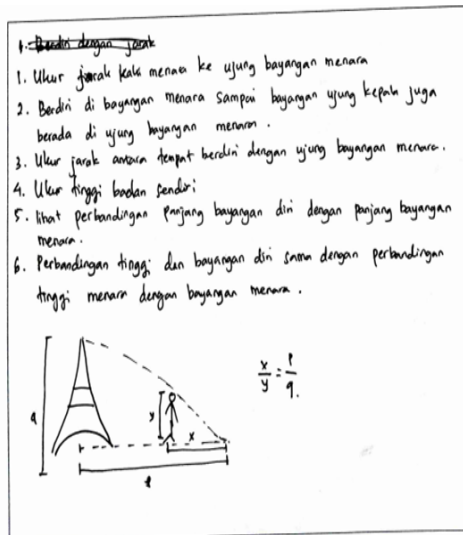 1. Berdiri dengan jarak
1. Ukur jarak kaki menara ke ujung bayangan menara
2. Berdiri di bayangan menara sampai bayangan ujung kepala juga
berada di ujung bayangan menara.
3. Ukur jarak antara tempat berdiri dengan ujung bayangan menara.
4. Ukur tinggi badan sendiri
5. lihat perbandingan panjang bayangan diri dengan panjang bayangan
menara.
6. Perbandingan tinggi dan bayangan diri sama dengan perbandingan
tinggi menara dengan bayangan menara.
x/y = p/q.
q
y
x